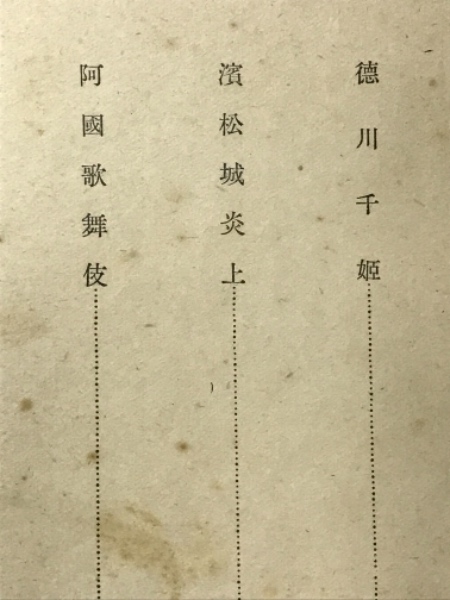 德川千姬
濱松城炎上
阿國歌舞伎